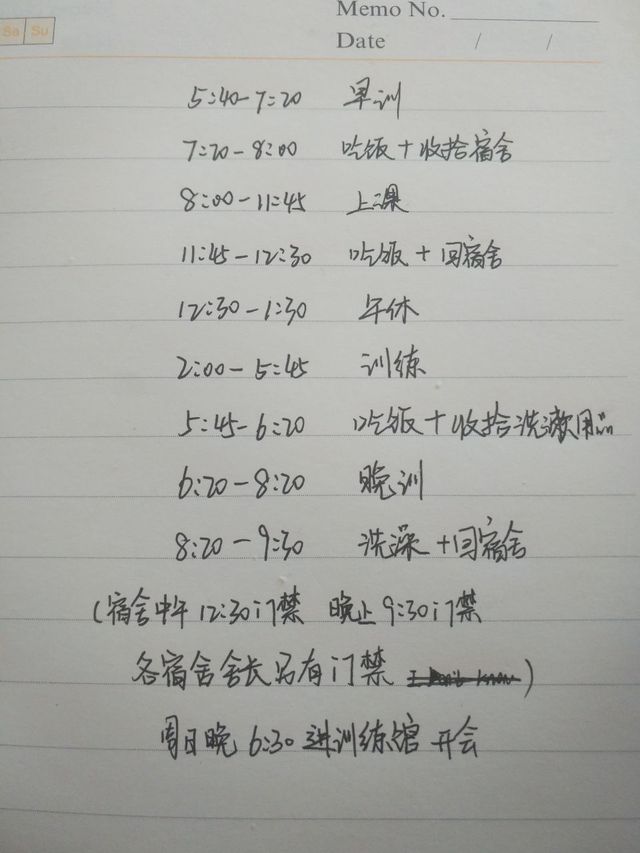 Sa Su
Memo No.
Date / /
5:40-7:20 早训
7:20-8:00 吃饭+收拾宿舍
8:00-11:45 上课
11:45-12:30 吃饭+回宿舍
12:30-1:30 午休
2:00-5:45 训练
5:45-6:20 吃饭+收拾洗漱用品
6:20-8:20 晚训
8:20-9:30 洗澡+回宿舍
(宿舍中午12:30门禁 晚上9:30门禁
各宿舍舍长只有门禁 )
周日晚6:30进训练馆开会